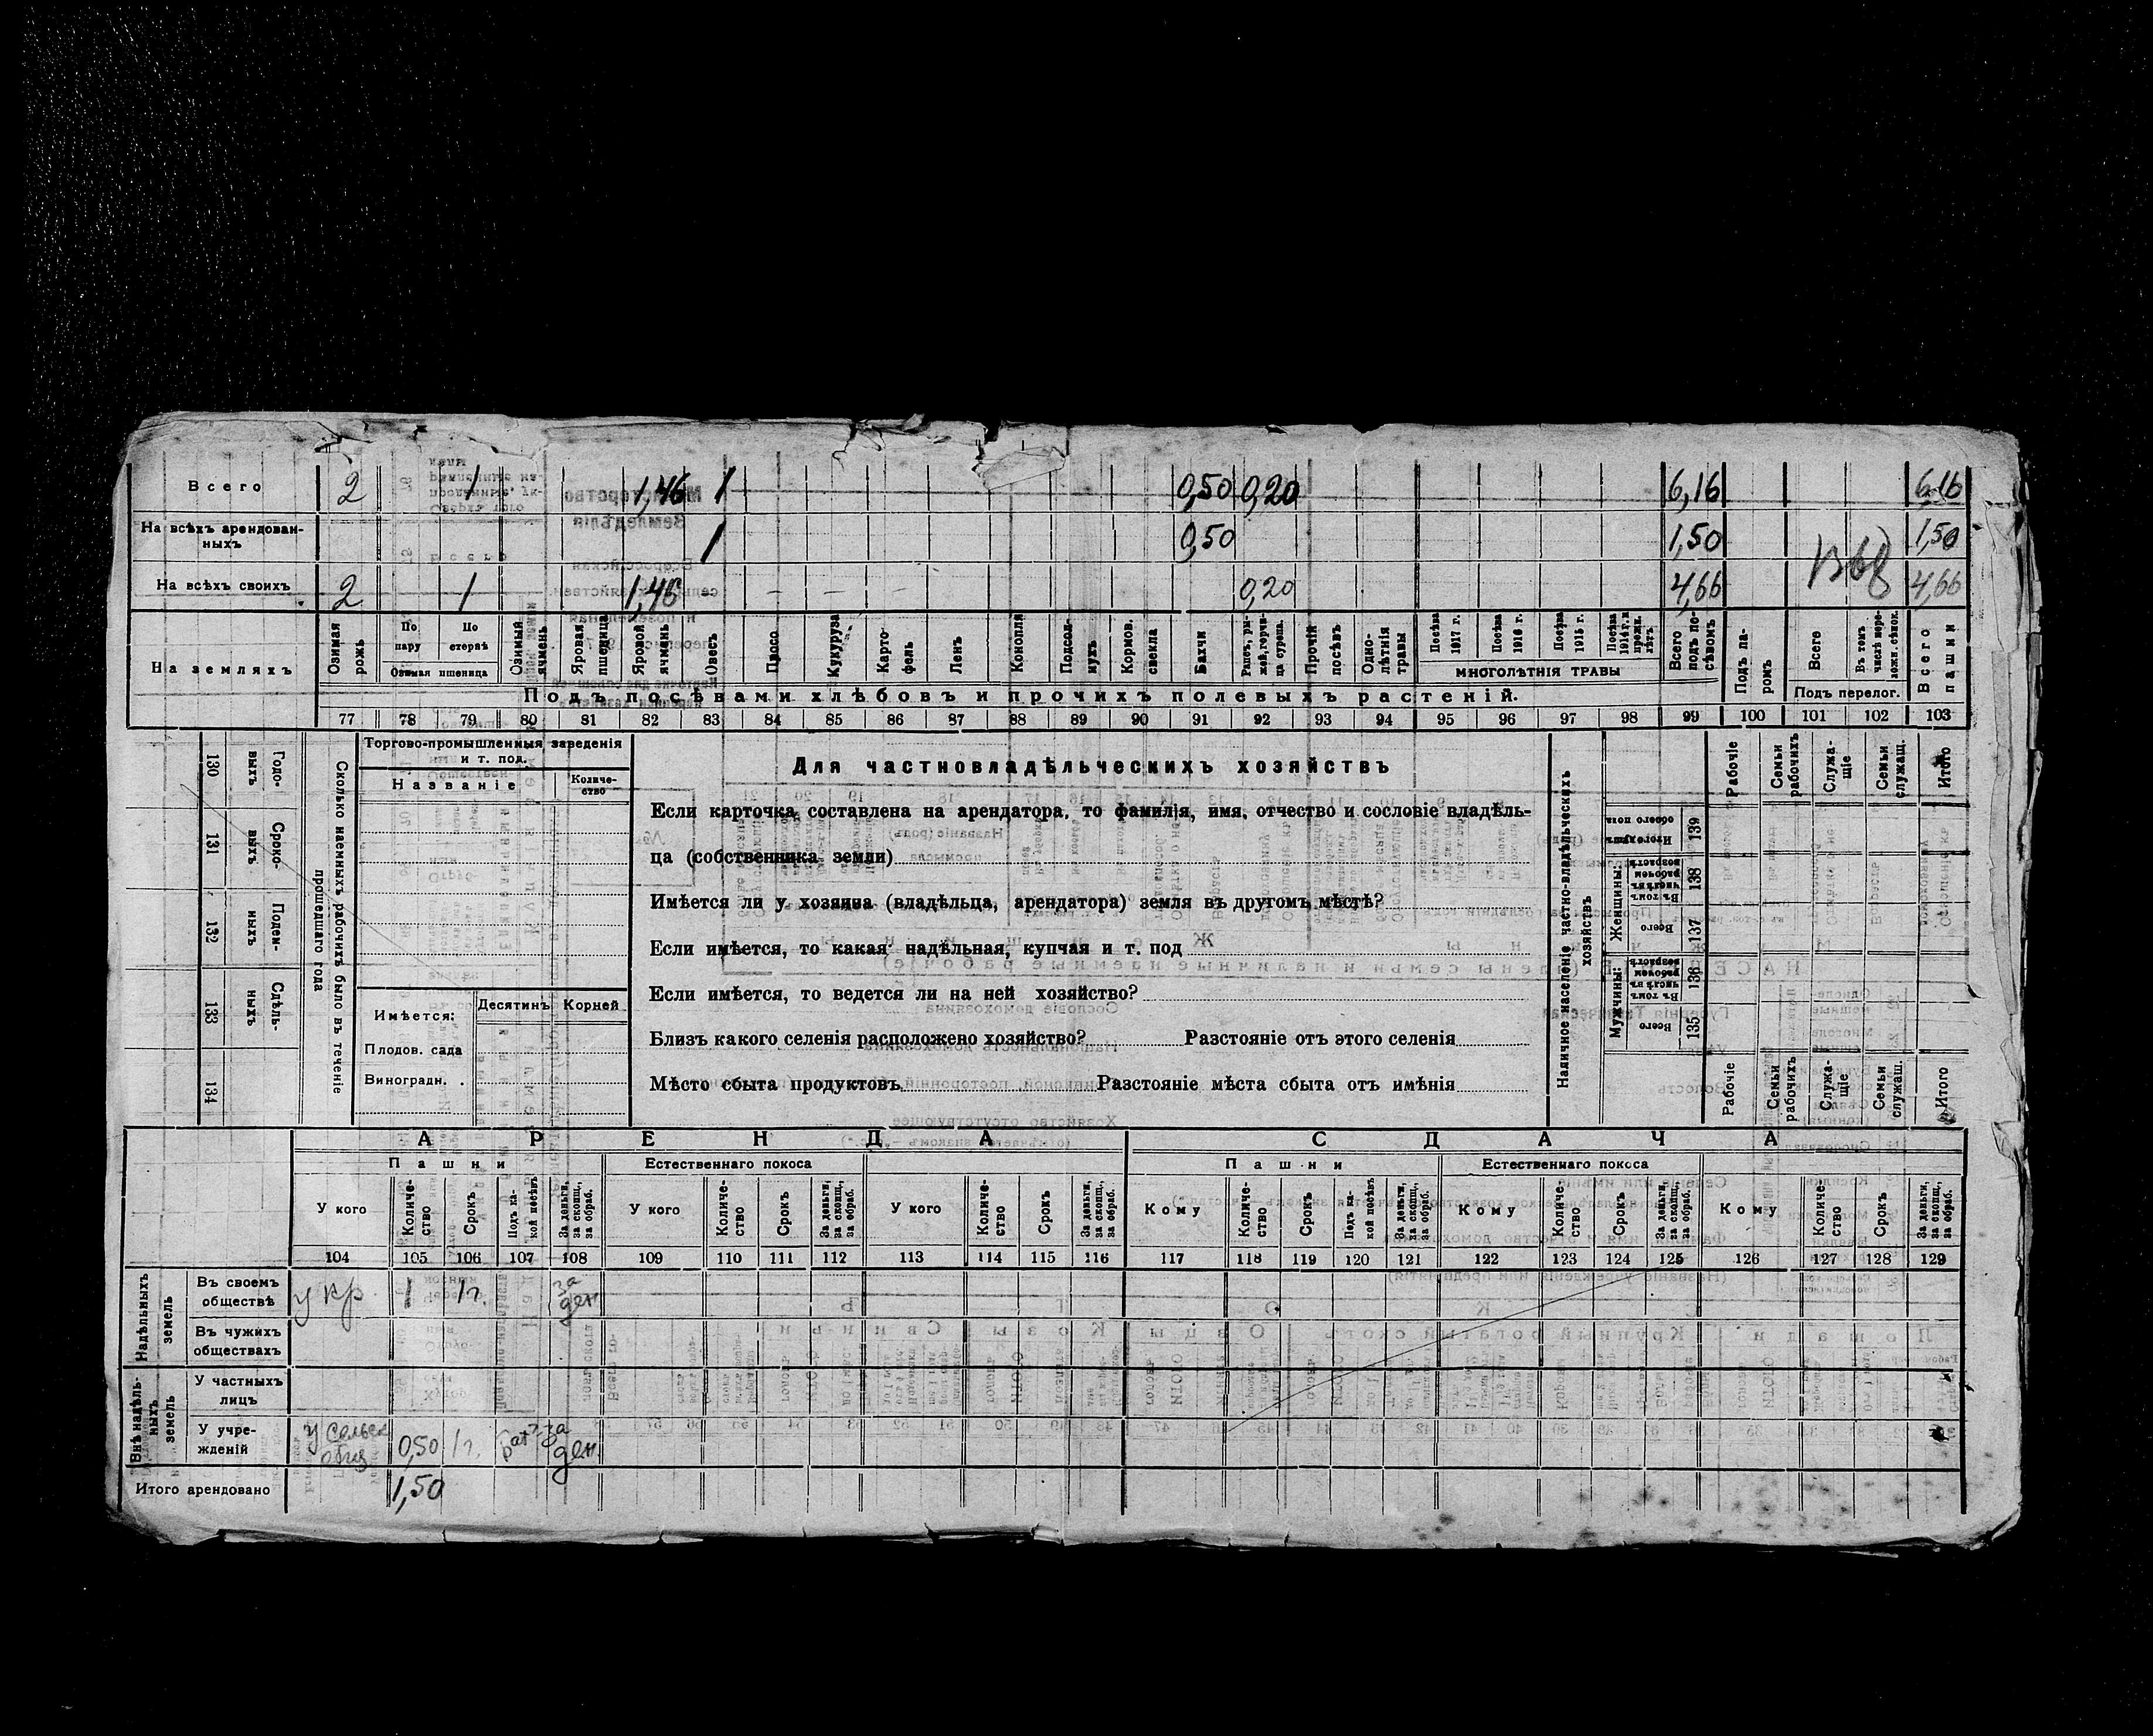 Всего 2 1 1,46 1 0,50 0,20 6,16 6,16
На всѣхъ арендован-
ныхъ 1 0,50 1,50 1,50
На всѣхъ своихъ 2 1 1,46 0,20 4,66 4,66
На земляхъ
Озимая рожь
По пару
По стернѣ
Озимая пшеница
Озимый ячмень
Яровая пшеница
Яровой ячмень
Овесъ
Просо
Кукуруза
Карто-
фель
Ленъ
Конопля
Подсол-
нухъ
Кормов. свекла
Бахчи
Рапсъ, ры-
жей, горчи-
ца сурепа.
Прочій посѣвъ
Одно-
лѣтнія травы
Посѣва 1917 г.
Посѣва 1916 г.
Посѣва 1915 г.
Посѣва 1914 г. и прежн. лѣтъ
МНОГОЛѢТНІЯ ТРАВЫ
Всего подъ по-
сѣвомъ
Подъ па-
ромъ
Всего
Въ томъ числѣ пере-
ложн. сѣнок.
Подъ перелог.
Всего пашни
Подъ посѣвами хлѣбовъ и прочихъ полевыхъ растеній.
77 78 79 80 81 82 83 84 85 86 87 88 89 90 91 92 93 94 95 96 97 98 99 100 101 102 103
Сколько наемныхъ рабочихъ было въ теченіе
прошедшаго года
Годо-
выхъ 130
Сроко-
выхъ 131
Поден-
ныхъ 132
Сдѣль-
ныхъ 133
134
Торгово-промышленныя заведенія
и т. под.
Названіе
Количе-
ство
Имѣется:
Десятинъ Корней
Плодов. сада
Виноградн. .
Для частновладѣльческихъ хозяйствъ
Если карточка составлена на арендатора, то фамилія, имя, отчество и сословіе владѣль-
ца (собственника земли)
Имѣется ли у хозяина (владѣльца, арендатора) земля въ другомъ мѣстѣ?
Если имѣется, то какая: надѣльная, купчая и т. под
Если имѣется, то ведется ли на ней хозяйство?
Близъ какого селенія расположено хозяйство? Разстояніе отъ этого селенія
Мѣсто сбыта продуктовъ Разстояніе мѣста сбыта отъ имѣнія
Наличное населеніе частно-владѣльческихъ
хозяйствъ
Мужчины:
Всего 135
Въ томъ числѣ въ рабочемъ возрастѣ 136
Женщины:
Всего 137
Въ томъ числѣ въ рабочемъ возрастѣ 138
Итого душъ обоего пола 139
Рабочіе
Семьи рабочихъ
Служа-
щіе
Семьи служащ.
Итого
Рабочіе
Семьи рабочихъ
Служа-
щіе
Семьи служащ.
Итого
АРЕНДА
СДАЧА
Пашни
Естественнаго покоса
Пашни
Естественнаго покоса
У кого
Количе-
ство
Срокъ
Подъ ка-
кой посѣвъ
За деньги, за скопщ., за обраб.
У кого
Количе-
ство
Срокъ
За деньги, за скопщ., за обраб.
У кого
Количе-
ство
Срокъ
За деньги, за скопщ., за обраб.
Кому
Количе-
ство
Срокъ
Подъ ка-
кой посѣвъ
За деньги, за скопщ., за обраб.
Кому
Количе-
ство
Срокъ
За деньги, за скопщ., за обраб.
Кому
Количе-
ство
Срокъ
За деньги, за скопщ., за обраб.
104 105 106 107 108 109 110 111 112 113 114 115 116 117 118 119 120 121 122 123 124 125 126 127 128 129
Надѣльныхъ
земель
Въ своемъ
обществѣ у кр. 1 1 г. за ден
Въ чужихъ
обществахъ
Внѣ надѣль-
ныхъ
земель
У частныхъ
лицъ
У учре-
жденій у сельск общ 0,50 1 г. за ден.
Итого арендовано 1,50